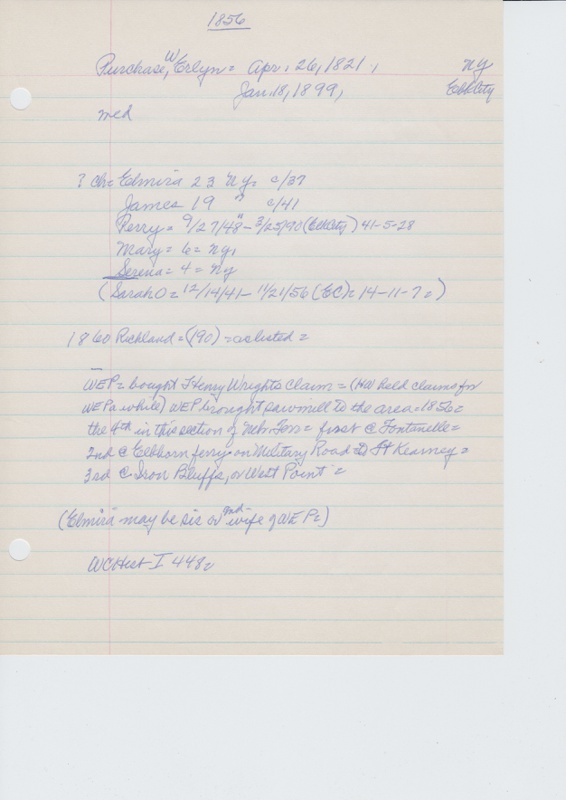 1856
Purchase, W Erlyn = Apr. 26, 1821, NY
Jan. 18, 1899, Elk City
med
? Ch = Elmira 23 NY = c/37
James 19 " c/41
Perry = 9/27/48 - 3/25/90 (Elk City) 41-5-28
Mary = 6 = NY,
Serena = 4 = NY
(Sarah O = 12/14/41 - 11/21/56 (EC) = 14-11-7 =)
1860 Richland = (190) = as listed =
WEP = bought J Henry Wrights Claim = (HW held claims for
WEP a while) WEP brought sawmill to the area = 1856 =
the 4th in this section of Nebr Terr = first @ Fontanelle =
2nd @ Elkhorn ferry on Military Road to Ft Kearney =
3rd @ Iron Bluffs, or West Point =
(Elmira may be sis or 2nd wife of WEP =)
WCHist I 448 =